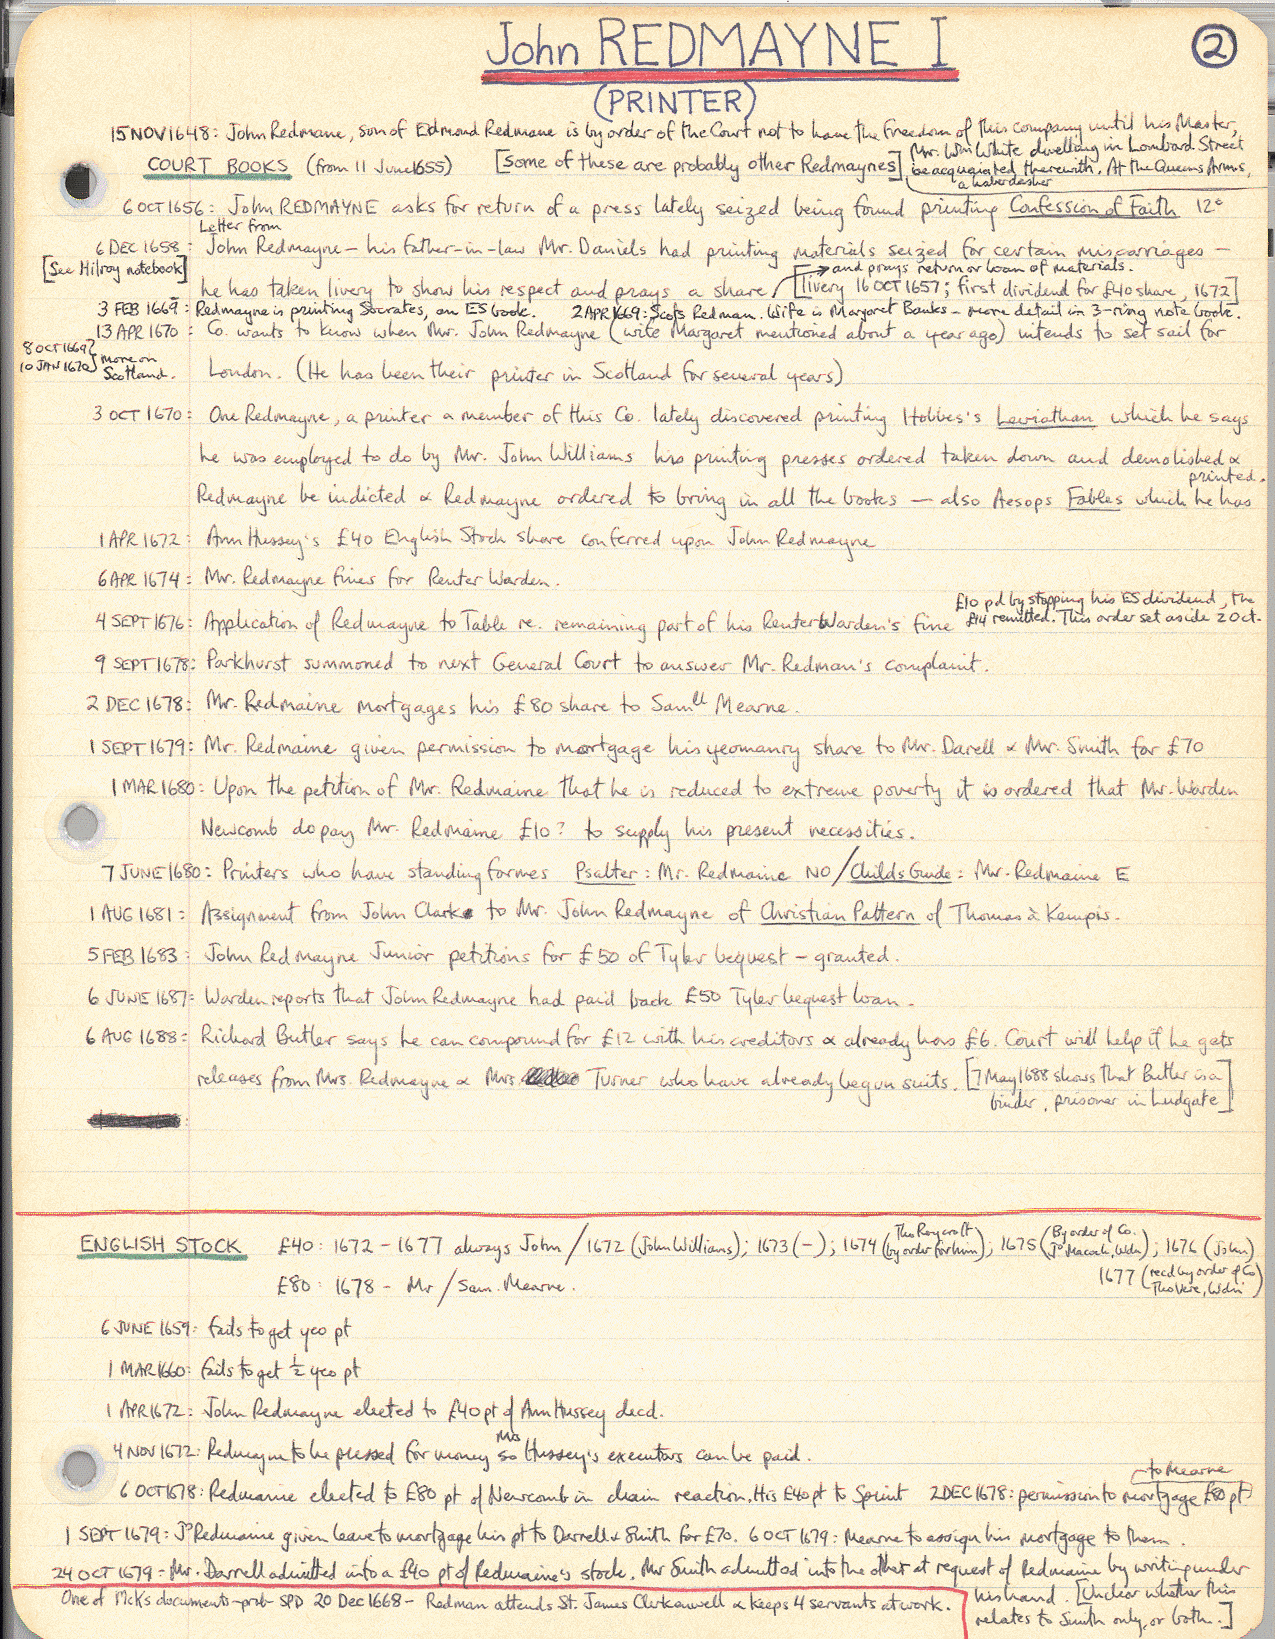 John REDMAYNE I
2
(PRINTER)
15 NOV 1648: John Redmane, son of Edmond Redmane is by order of the Court not to have the Freedom of this company until his Master,
Mr. Wm White dwelling in Lombard Street
be acquainted therewith. At the Queens Arms,
a haberdasher
COURT BOOKS (from 11 June 1655) [some of these are probably other Redmaynes]
6 OCT 1656: John REDMAYNE asks for return of a press lately seized being found printing Confession of Faith 12°
Letter from
6 DEC 1658: John Redmayne - his father-in-law Mr. Daniels had printing materials seized for certain miscarriages -
[See Hilroy notebook]
and prays return or loan of materials.
he has taken livery to show his respect and prays a share [livery 16 OCT 1657; first dividend for £40 share, 1672]
3 FEB 1669: Redmayne is printing Socrates, an ES book. 2 APR 1669: Scots Redman. Wife is Margaret Banks - more detail in 3-ring note book.
13 APR 1670: Co. wants to know when Mr. John Redmayne (wife Margaret mentioned about a year ago) intends to set sail for
8 OCT 1669
10 JAN 1670 } more on Scotland.
London. (He has been their printer in Scotland for several years)
3 OCT 1670: One Redmayne, a printer a member of this Co. lately discovered printing Hobbes's Leviathan which he says
he was employed to do by Mr. John Williams his printing presses ordered taken down and demolished &
Redmayne be indicted & Redmayne ordered to bring in all the books - also Aesops Fables which he has
printed.
1 APR 1672: Ann Hussey's £40 English Stock share conferred upon John Redmayne
6 APR 1674: Mr. Redmayne fines for Renter Warden.
4 SEPT 1676: Application of Redmayne to Table re. remaining part of his Renter Warden's fine
£10 pd by stopping his ES dividend, the
£14 remitted. This order set aside 2 Oct.
9 SEPT 1678: Parkhurst summoned to next General Court to answer Mr. Redman's complaint.
2 DEC 1678: Mr. Redmaine mortgages his £80 share to Samll Mearne.
1 SEPT 1679: Mr. Redmaine given permission to mortgage his yeomanry share to Mr. Darell & Mr. Smith for £70
1 MAR 1680: Upon the petition of Mr. Redmaine that he is reduced to extreme poverty it is ordered that Mr. Warden
Newcomb do pay Mr. Redmaine £10? to supply his present necessities.
7 JUNE 1680: Printers who have standing formes Psalter: Mr. Redmaine NO / Childs Guide: Mr. Redmaine E
1 AUG 1681: Assignment from John Clark to Mr. John Redmayne of Christian Pattern of Thomas à Kempis.
5 FEB 1683: John Redmayne Junior petitions for £50 of Tyler bequest - granted.
6 JUNE 1687: Warden reports that John Redmayne had paid back £50 Tyler bequest loan.
6 AUG 1688: Richard Butler says he can compound for £12 with his creditors & already has £6. Court will help if he gets
releases from Mrs. Redmayne & Mrs Turner who have already begun suits. [7 May 1688 shows that Butler is a
binder, prisoner in Ludgate]
ENGLISH STOCK £40: 1672 - 1677 always John / 1672 (John Williams); 1673 (-); 1674 (Tho Roycroft by order for him); 1675 (By order of Co. Jo Macock, Wdn); 1676 (John)
1677 (recd by order of Co Tho Vere, Wdn)
£80: 1678 - Mr / Sam. Mearne.
6 JUNE 1659: fails to get yeo pt
1 MAR 1660: fails to get ½ yeo pt
1 APR 1672: John Redmayne elected to £40 pt of Ann Hussey decd.
4 NOV 1672: Redmayne to be pressed for money so Mrs Hussey's executors can be paid.
6 OCT 1678: Redmaine elected to £80 pt of Newcomb in chain reaction. His £40 pt to Sprint 2 DEC 1678: permission to mortgage £80 pt
to Mearne
1 SEPT 1679: Jo Redmaine given leave to mortgage his pt to Darrell & Smith for £70. 6 OCT 1679: Mearne to assign his mortgage to them.
24 OCT 1679 - Mr. Darrell admitted into a £40 pt of Redmaine's stock. Mr Smith admitted into the other at request of Redmaine by writing under
his hand. [Unclear whether this
relates to Smith only, or both.]
One of McK's documents - prob- SPD 20 Dec 1668 - Redman attends St. James Clerkenwell & keeps 4 servants at work.